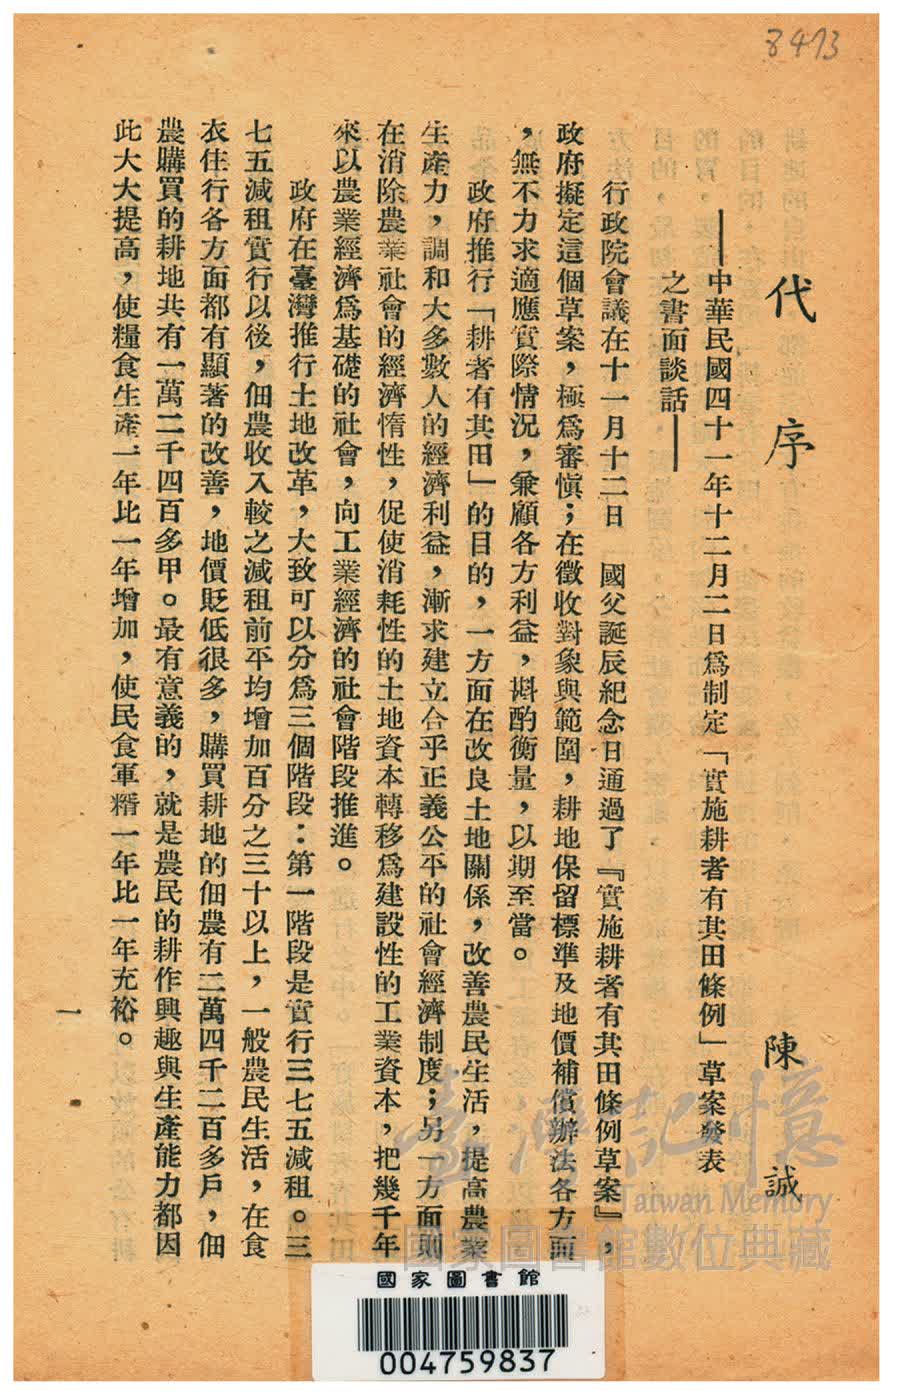 8473
代序　陳誠
——中華民國四十一年十二月二日爲制定「實施耕者有其田條例」草案發表
之書面談話——
行政院會議在十一月十二日　國父誕辰紀念日通過了『實施耕者有其田條例草案』，
政府擬定這個草案，極爲審愼；在徵收對象與範圍，耕地保留標準及地價補償辦法各方面
，無不力求適應實際情況，兼顧各方利益，斟酌衡量，以期至當。
政府推行「耕者有其田」的目的，一方面在改良土地關係，改善農民生活，提高農業
生產力，調和大多數人的經濟利益，漸求建立合乎正義公平的社會經濟制度；另一方面則
在消除農業社會的經濟惰性，促使消耗性的土地資本轉移爲建設性的工業資本，把幾千年
來以農業經濟爲基礎的社會，向工業經濟的社會階段推進。
政府在臺灣推行土地改革，大致可以分爲三個階段：第一階段是實行三七五減租。三
七五減租實行以後，佃農收入較之減租前平均增加百分之三十以上，一般農民生活，在食
衣住行各方面都有顯著的改善，地價貶低很多，購買耕地的佃農有二萬四千二百多戶，佃
農購買的耕地共有一萬二千四百多甲。最有意義的，就是農民的耕作興趣與生產能力都因
此大大提高，使糧食生產一年比一年增加，使民食軍糈一年比一年充裕。
一
臺灣記憶
Taiwan Memory
國家圖書館數位典藏
國家圖書館
004759837